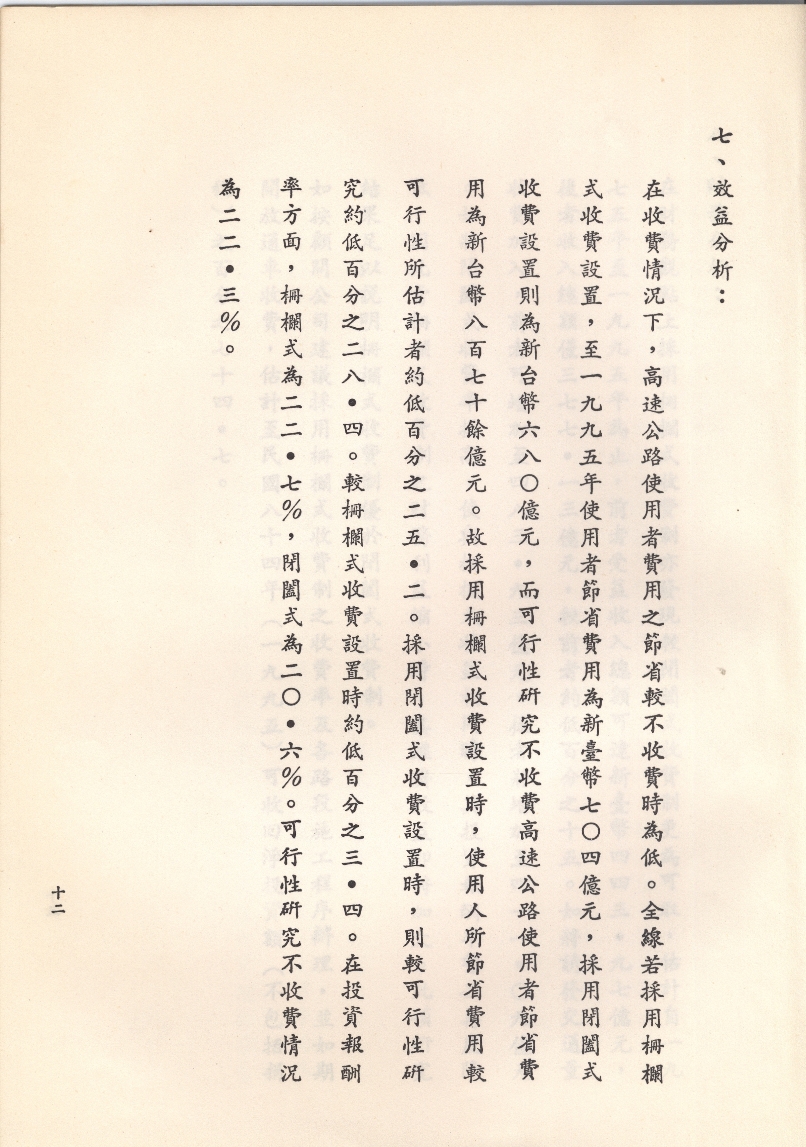 七、效益分析：
在收費情況下，高速公路使用者費用之節省較不收費時為低。全線若採用柵欄
式收費設置，至一九九五年使用者節省費用為新臺幣七〇四億元，採用閉闔式
收費設置則為新台幣六八〇億元，而可行性研究不收費高速公路使用者節省費
用為新台幣八百七十餘億元。故採用柵欄式收費設置時，使用人所節省費用較
可行性所估計者約低百分之二五•二。採用閉闔式收費設置時，則較可行性研
究約低百分之二八•四。較柵欄式收費設置時約低百分之三•四。在投資報酬
率方面，柵欄式為二二•七%，閉闔式為二〇•六%。可行性研究不收費情況
為二二•三%。
十二